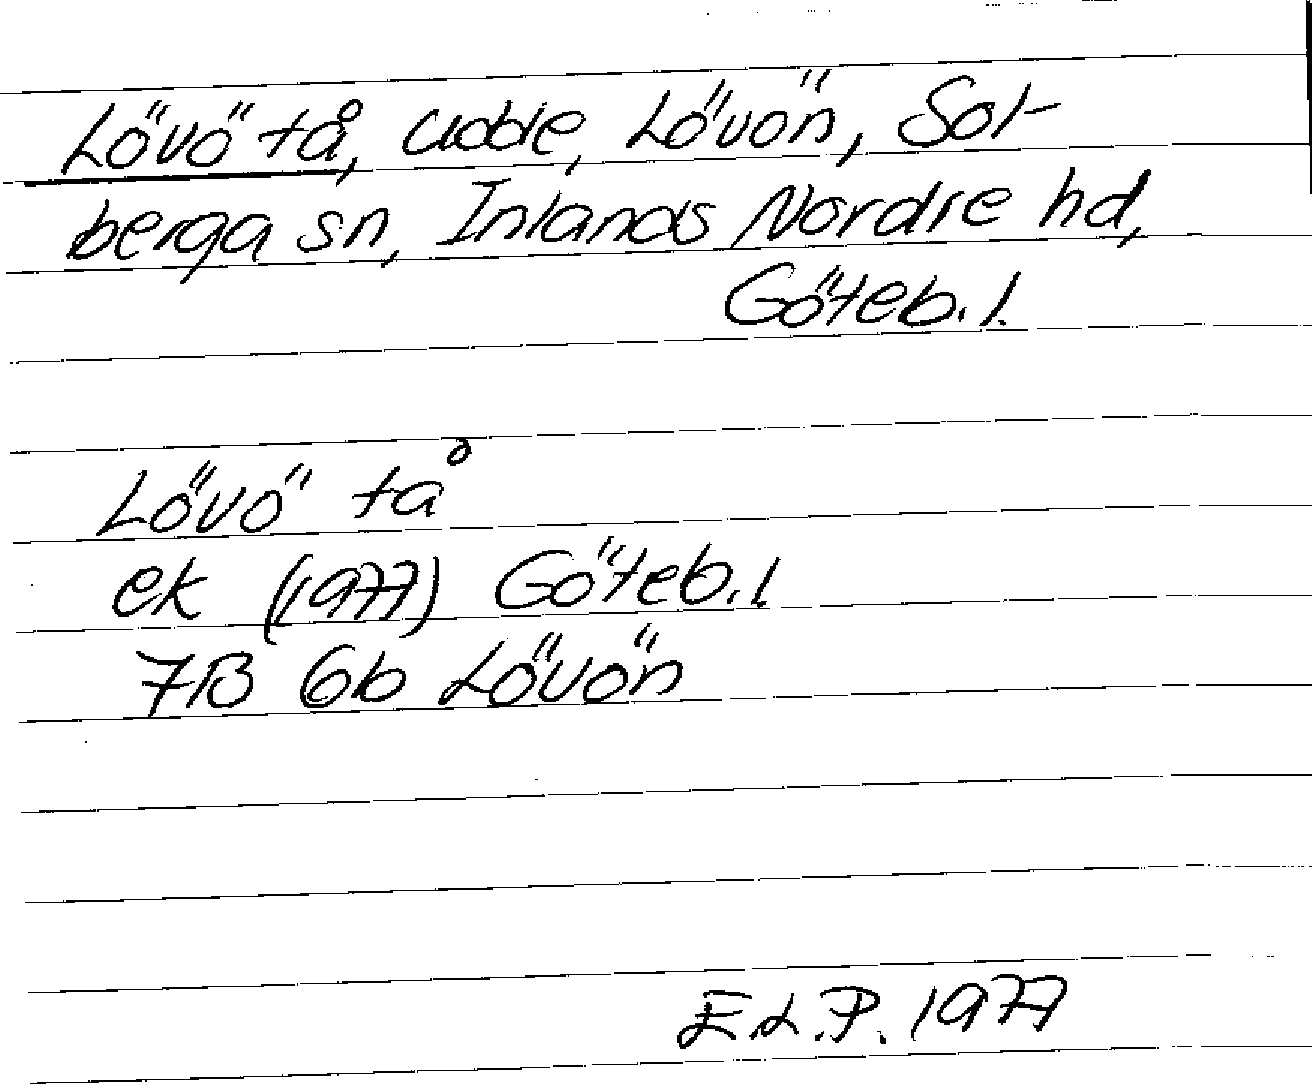 Lövö tå, udde, Lövön, Sol-
berga sn, Inlands Nordre hd,
Göteb. l.
Lövö tå
ek (1977) Göteb. l.
7B 6b Lövön
E.L.P. 1977